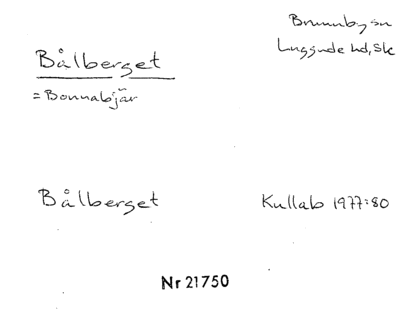 Bålberget
Brunnby sn
Luggude hd, Sk
= Bonnabjär
Bålberget
Kullab 1977:80
Nr 21750